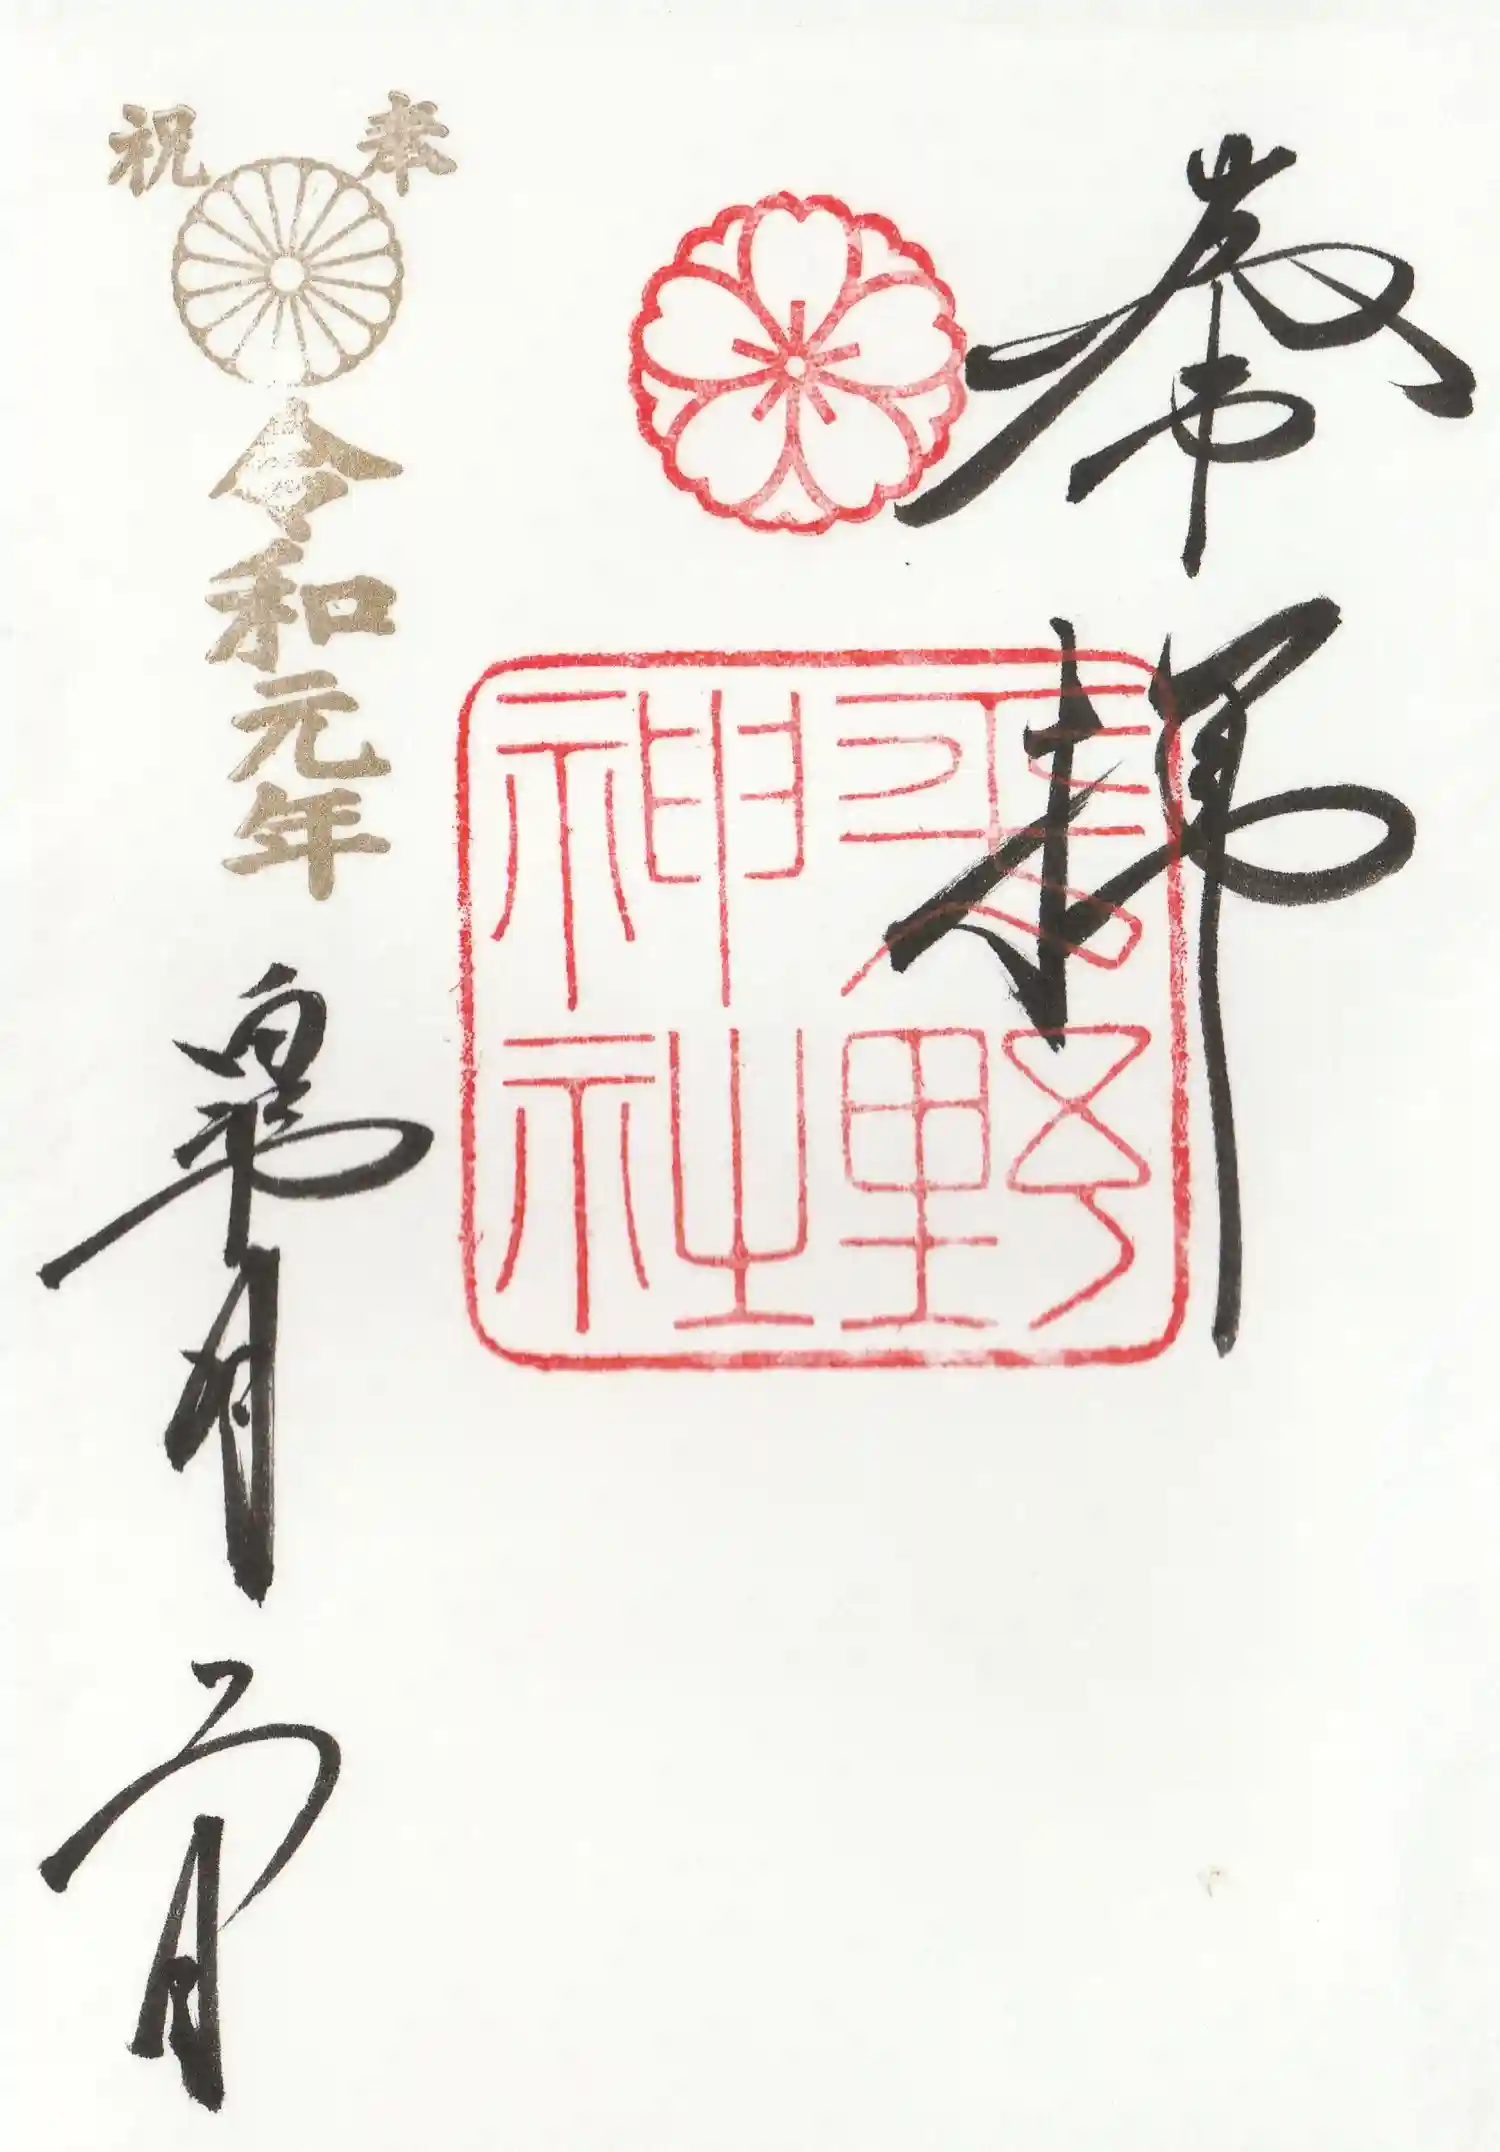 奉拝
平野
神社
奉祝
令和元年
皐月 日